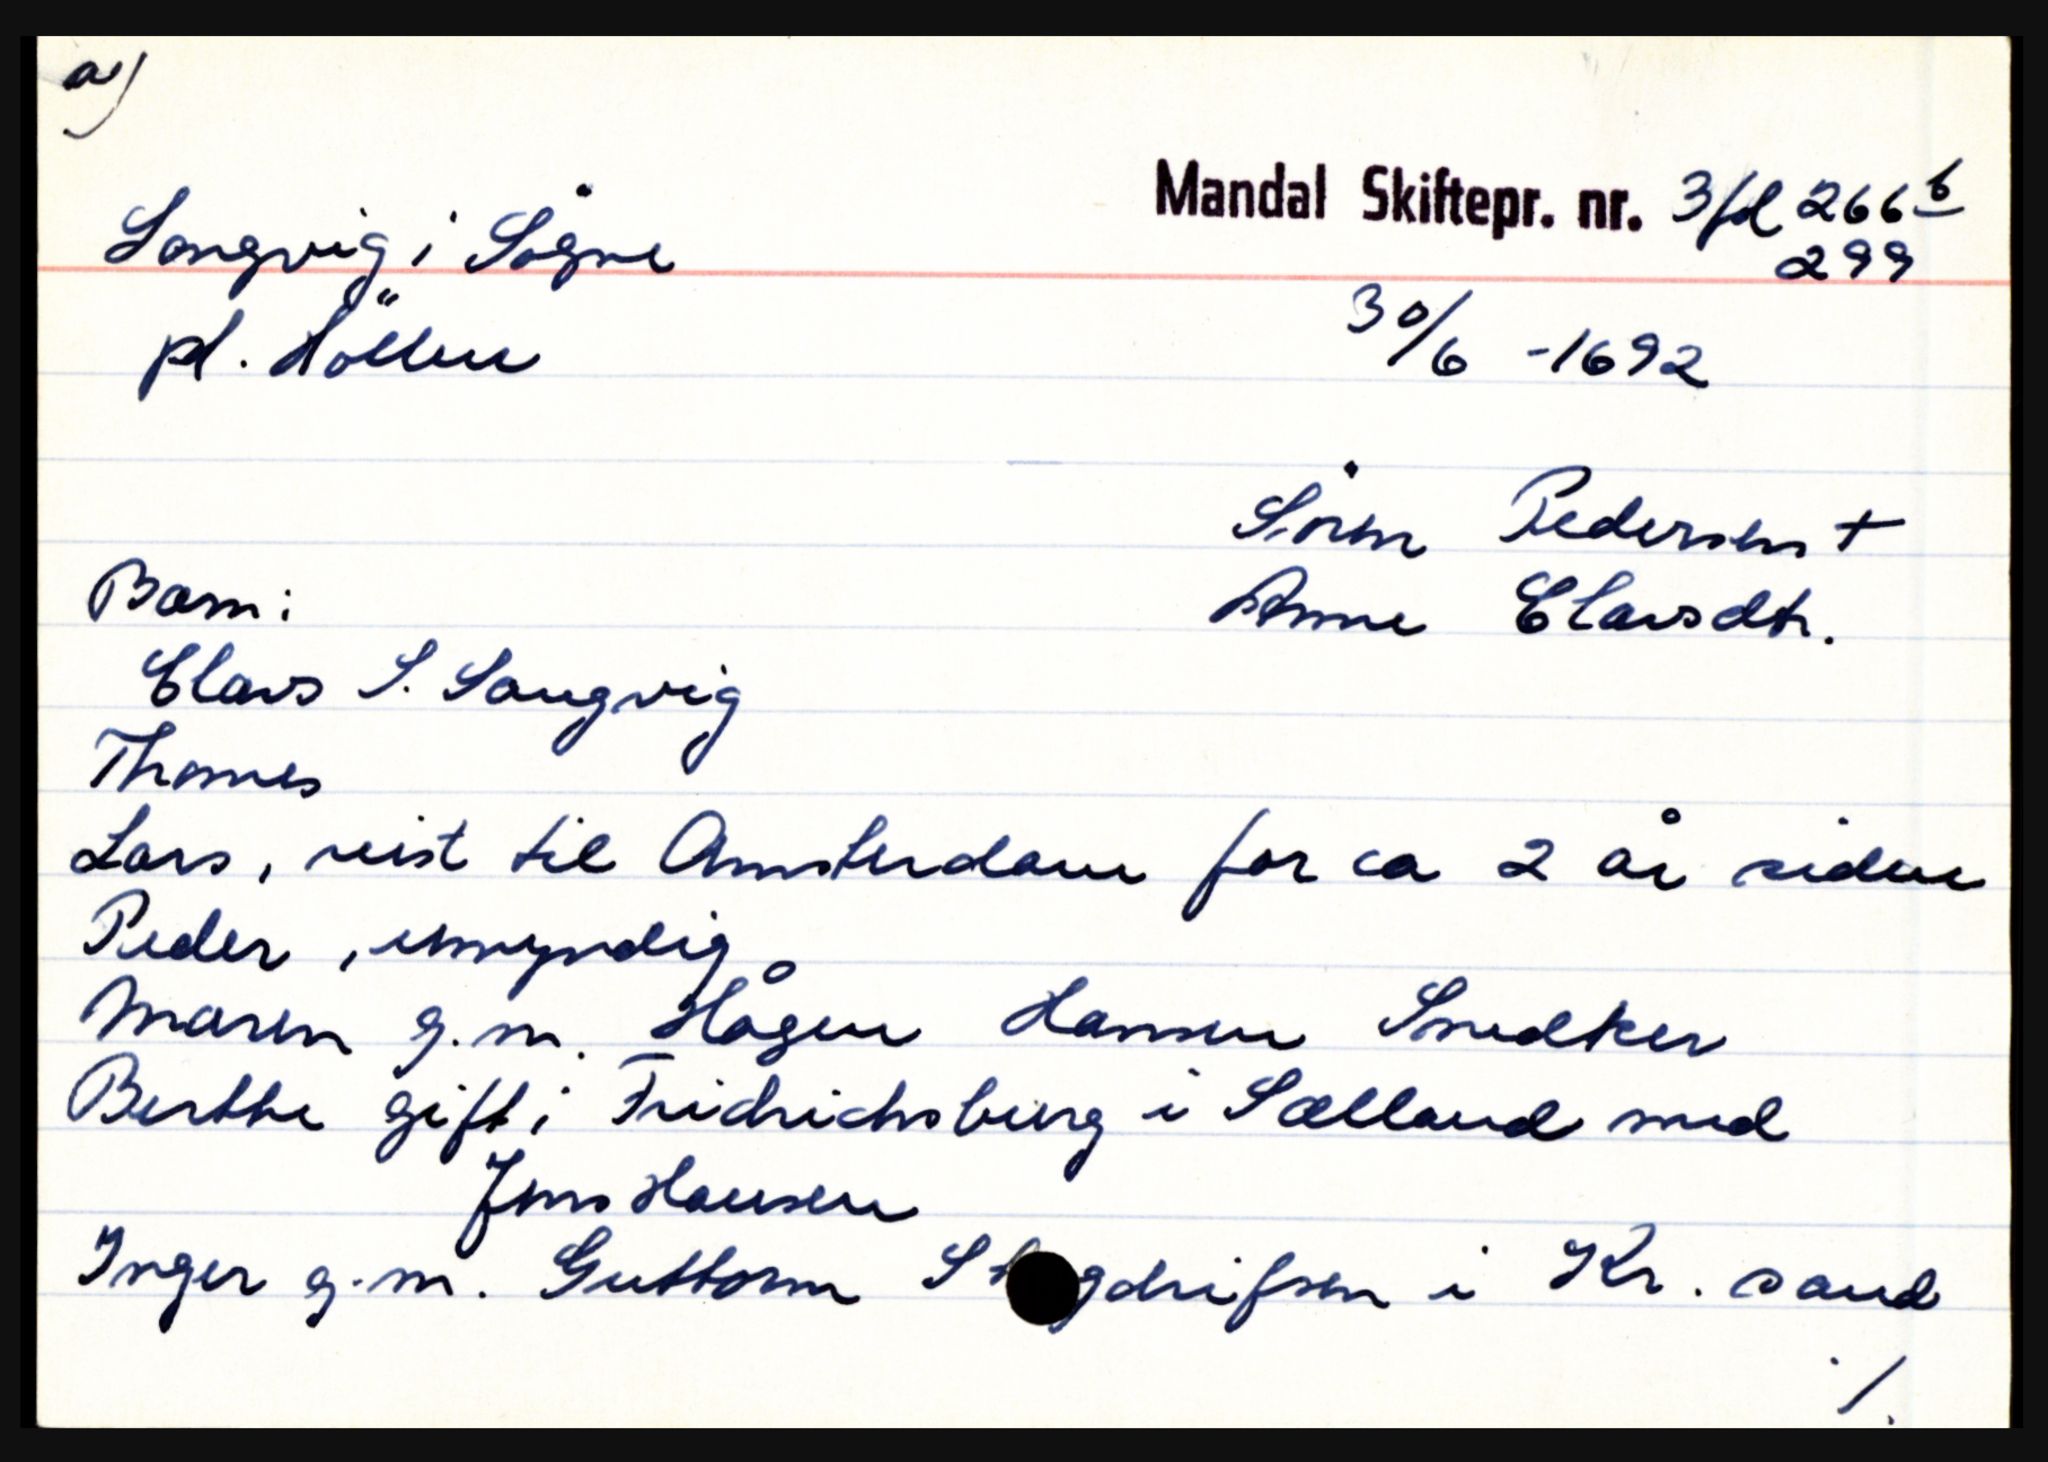 a)
Mandal Skiftepr. nr. 3 fol 266 b
299
Songvig i Søgne
pl. Höllen
30/6 - 1692
Sören Pedersen +
Anne Clawsdtr.
Barn:
Claws S. Songvig
Thomes
Lars, reist til Amsterdam for ca 2 år siden
Peder, umyndig
Maren g.m. Hågen Hansen Snedker
Berthe gift i Fridrichsburg i Sælland med
Jens Hansen
Inger g.m. Guttorm i Kr. sand
./.